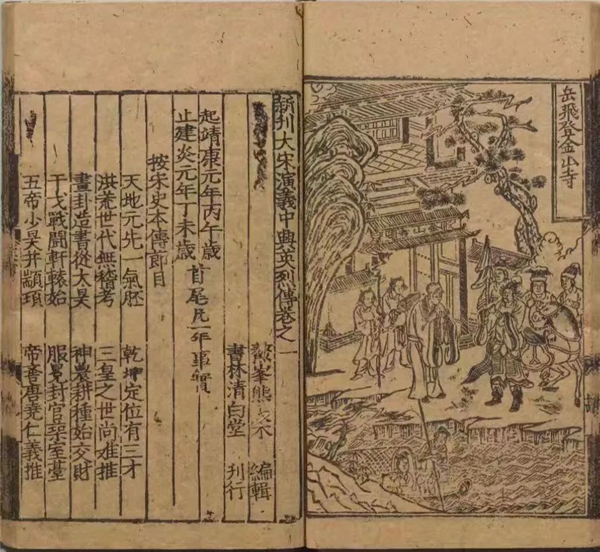 岳飛登金山寺
新刊大宋演義中興英烈傳卷之一
峯熊木 編輯
書林清白堂 刊行
起靖康元年丙午歲
止建炎元年丁未歲
首尾凡一年事實
按宋史本傳節目
天地元先一氣胚 乾坤定位有三才
洪荒世代無稽考 三皇之世尚难推
畫卦造書從太昊 神農耕種始交財
干戈戰鬪軒轅始 服冕封官築室臺
五帝少昊并顓頊 帝嚳唐堯仁義推